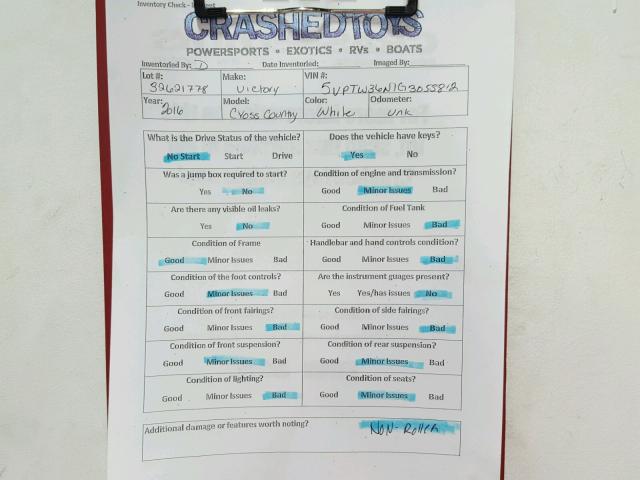 Inventory Check -
CRASHEDTOYS
POWERSPORTS • EXOTICS • RVs • BOATS
Inventoried By: D Date Inventoried: Imaged By:
Lot #: Make: VIN #:
32621778 Victory
Year: Model: Color: Odometer:
2016 Cross Country White unk
What is the Drive Status of the vehicle? Does the vehicle have keys?
No Start Start Drive Yes No
Was a jump box required to start? Condition of engine and transmission?
Yes No Good Minor Issues Bad
Are there any visible oil leaks? Condition of Fuel Tank
Yes No Good Minor Issues Bad
Condition of Frame Handlebar and hand controls condition?
Good Minor Issues Bad Good Minor Issues Bad
Condition of the foot controls? Are the instrument guages present?
Good Minor Issues Bad Yes Yes/has issues No
Condition of front fairings? Condition of side fairings?
Good Minor Issues Bad Good Minor Issues Bad
Condition of front suspension? Condition of rear suspension?
Good Minor Issues Bad Good Minor Issues Bad
Condition of lighting? Condition of seats?
Good Minor Issues Bad Good Minor Issues Bad
Additional damage or features worth noting? Non-Roller